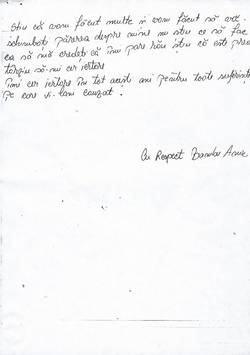 Stiu că v-am făcut multe in v-am făcut să vă
schimbați părerea despre mine nu stiu ce să fac
ca să mă credeti că îmi pare rău stiu că este prea
târziu să-mi cer iertare
îmi cer iertare în tot acesti ani pentru toate suferințele
pe care vi-lam cauzat.
Cu Respect